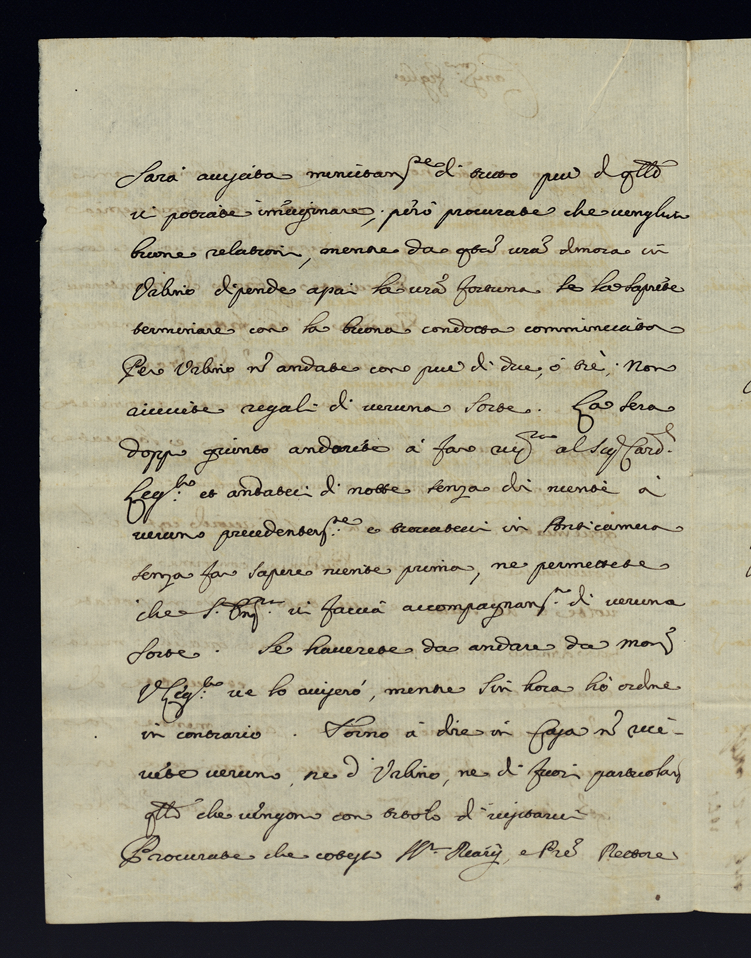 Sarà avisata minutam.te di tutto piu di q.llo
vi potrate imaginare, però procurate che venghin
buone relationi, mentre da q.ta vra dimora in
Urbino dipende assai la vra fortuna se la saprete
terminare con la buona condotta comminciata
Per Urbino n andate con piu di due, ò trè, Non
ricevete regali di veruna sorte. La sera
dopp giunto andarete à far al Sig. Card.
Leg.to et andateci di notte senza dir niente à
veruno precedentem.te e trovateci in Anticamera
senza far sapere niente prima, ne permettete
che S. vi faccia accompagnam.to di veruna
sorte. Se haverete da andare da Mon
V.Leg.to ve lo aviserò, mentre sin hora hò ordine
in contrario. Torno à dire in Casa n rice-
vete veruno, ne d Urbino, ne di fuori particolar
q.lli che vengono con titolo di visitarvi
Procurate che cotesti e Pre Rettore